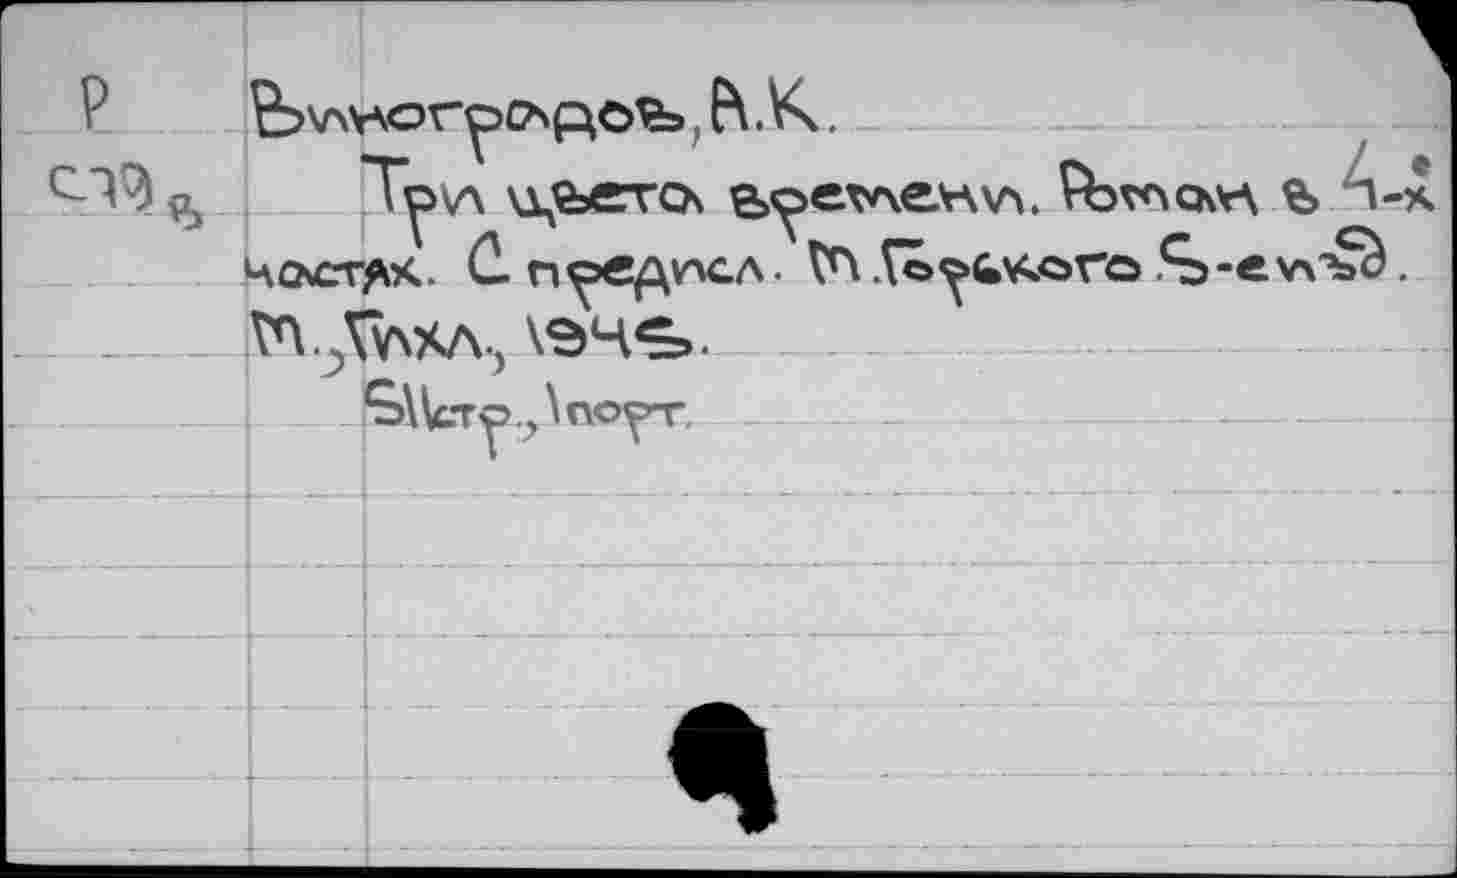 Р Виноградов, А.К.
Три цвета времени. Роман в 4-х
частях. С предисл. М.Горького. 5-е изд.
М., ГИХЛ., 1945.
511стр., 1порт.